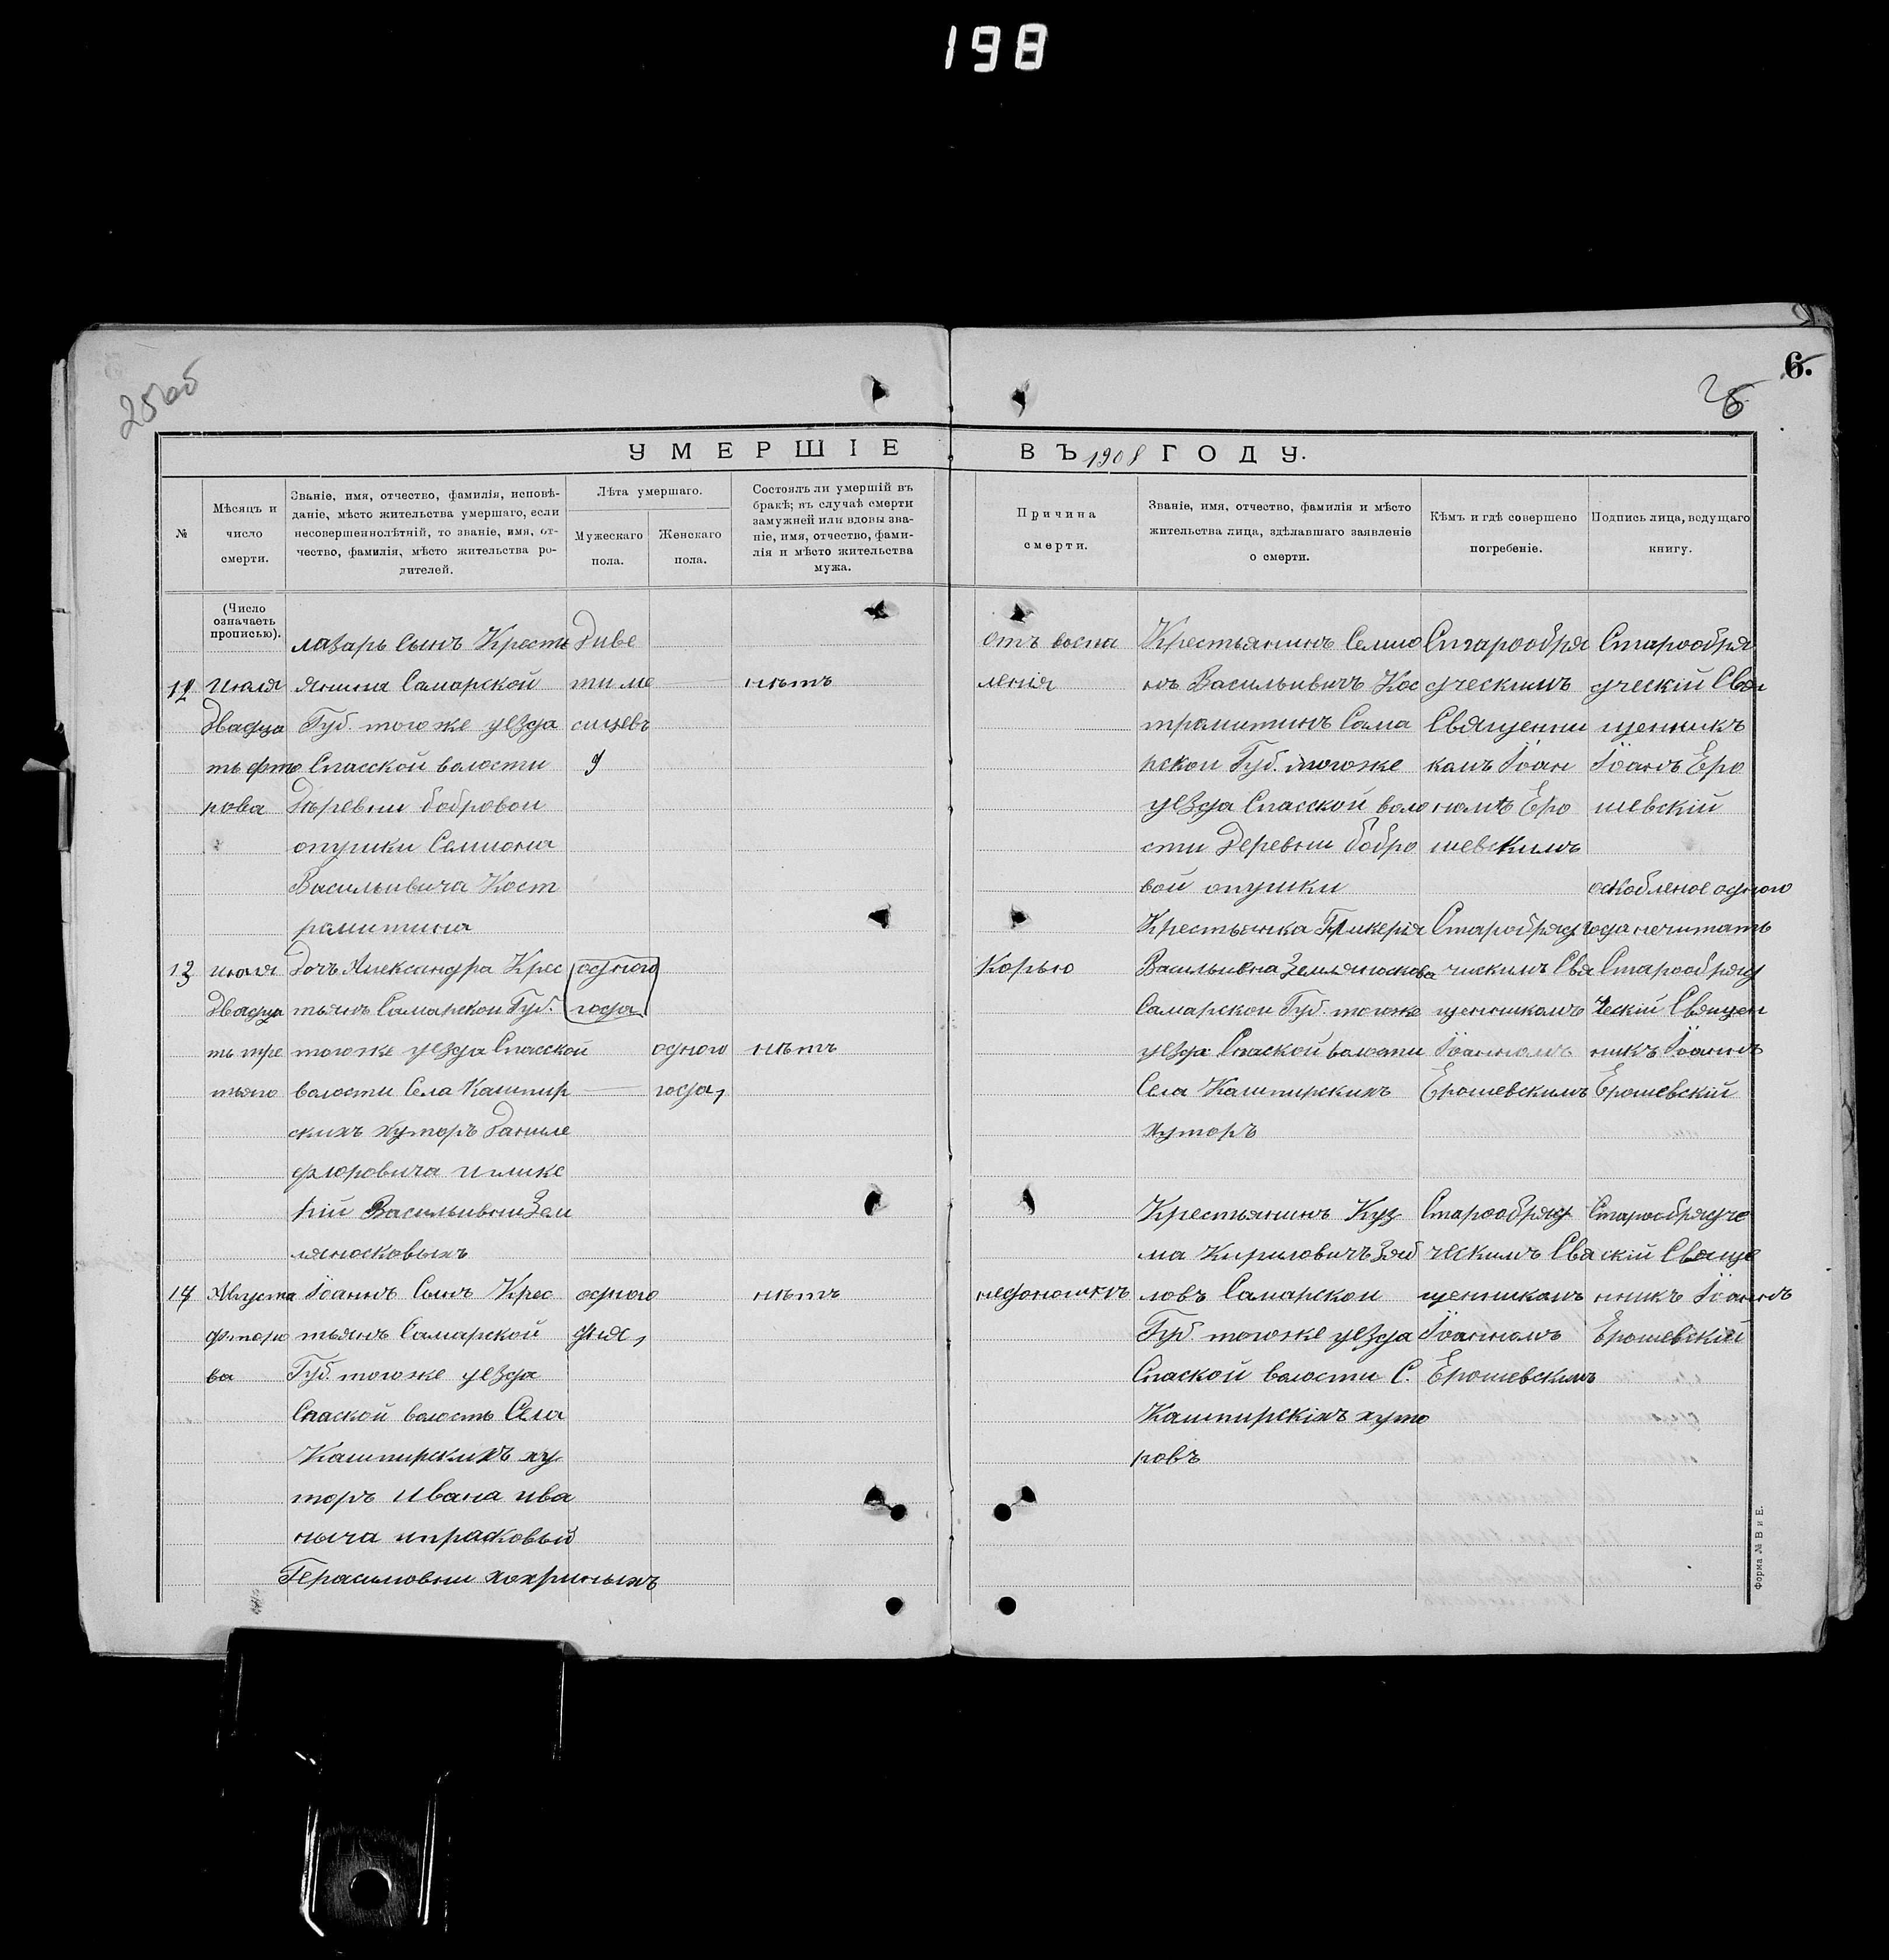 198
25об
6.
26
УМЕРШІЕ ВЪ 1908 ГОДУ.
№
Мѣсяцъ и
число
смерти.
Званіе, имя, отчество, фамилія, исповѣ-
даніе, мѣсто жительства умершаго, если
несовершеннолѣтній, то званіе, имя, от-
чество, фамилія, мѣсто жительства ро-
дителей.
Лѣта умершаго.
Мужескаго
пола.
Женскаго
пола.
Состоялъ ли умершій въ
бракѣ; въ случаѣ смерти
замужней или вдовы зва-
ніе, имя, отчество, фами-
лія и мѣсто жительства
мужа.
Причина
смерти.
Званіе, имя, отчество, фамилія и мѣсто
жительства лица, здѣлавшаго заявленіе
о смерти.
Кѣмъ и гдѣ совершено
погребеніе.
Подпись лица, ведущаго
книгу.
(Число
означаеть
прописью).
12
Июля
Двадца
ть фто
рова
лазарь Сынъ Кресть
янина Самарской
Губ. тогоже уезда
Спасской волости
Деревни бобровои
опушки Семиона
Васильивича Кост
рамитина
Диве
ти ме
сицевъ
9
нѣтъ
отъ воспа
ления
Крестьянинъ Семио
нъ Васильивичъ Кос
трамитинъ Сама
рскои Губ. тогоже
уезда Спасской воло
сти Деревни бобро
вой опушки
Старообря
дческимъ
Священни
комъ Іоан
номъ Еро
шевскимъ
Старообря
дческій Свя
щенникъ
Іоанъ Еро
шевскій
оскобленое одного
года нечитать
13
июля
Двадца
ть тре
тьяго
Дочъ Александра Крес
тьянъ Самарскои Губ.
тогоже уезда Спасской
волости Села Кашпир
скихъ хуторъ Даниле
фиоровича иглике
рій Васильивни Зем
лянсковыхъ
одного
года
одного
года,
нѣтъ
Корью
Крестьянка Гликерія
Васильивна Земляноскова
Самарскои Губ. тогоже
уезда Спаской волости
Села Кашпирскихъ
хуторъ
Старобряд
чискимъ Свя
щенникомъ
Іоанномъ
Ерошевскимъ
Старообряд
ческій Священ
никъ Іоаннъ
Ерошевскій
14
Августа
фторо
ва
Іоаннъ Сынъ Крес
тьянъ Самарской
Губ. тогоже уезда
Спаской волость Села
Кашпирскихъ ху
торъ Ивана ива
ныча ипрасковьй
Герасимовни хохриныхъ
одного
дня,
нѣтъ
недоношкъ
Крестьянинъ Куз
ма Кириловичъ Зяб
ловъ Самарскои
Губ. тогоже уезда
Спаской волости С.
Кашпирскіхъ хуто
ровъ
Старообряд
ческимъ Свя
щенникомъ
Іоанномъ
Ерошевскимъ
Старообрядче
скій Свяще
нникъ Іоаннъ
Ерошевскій
Форма № В и Е.